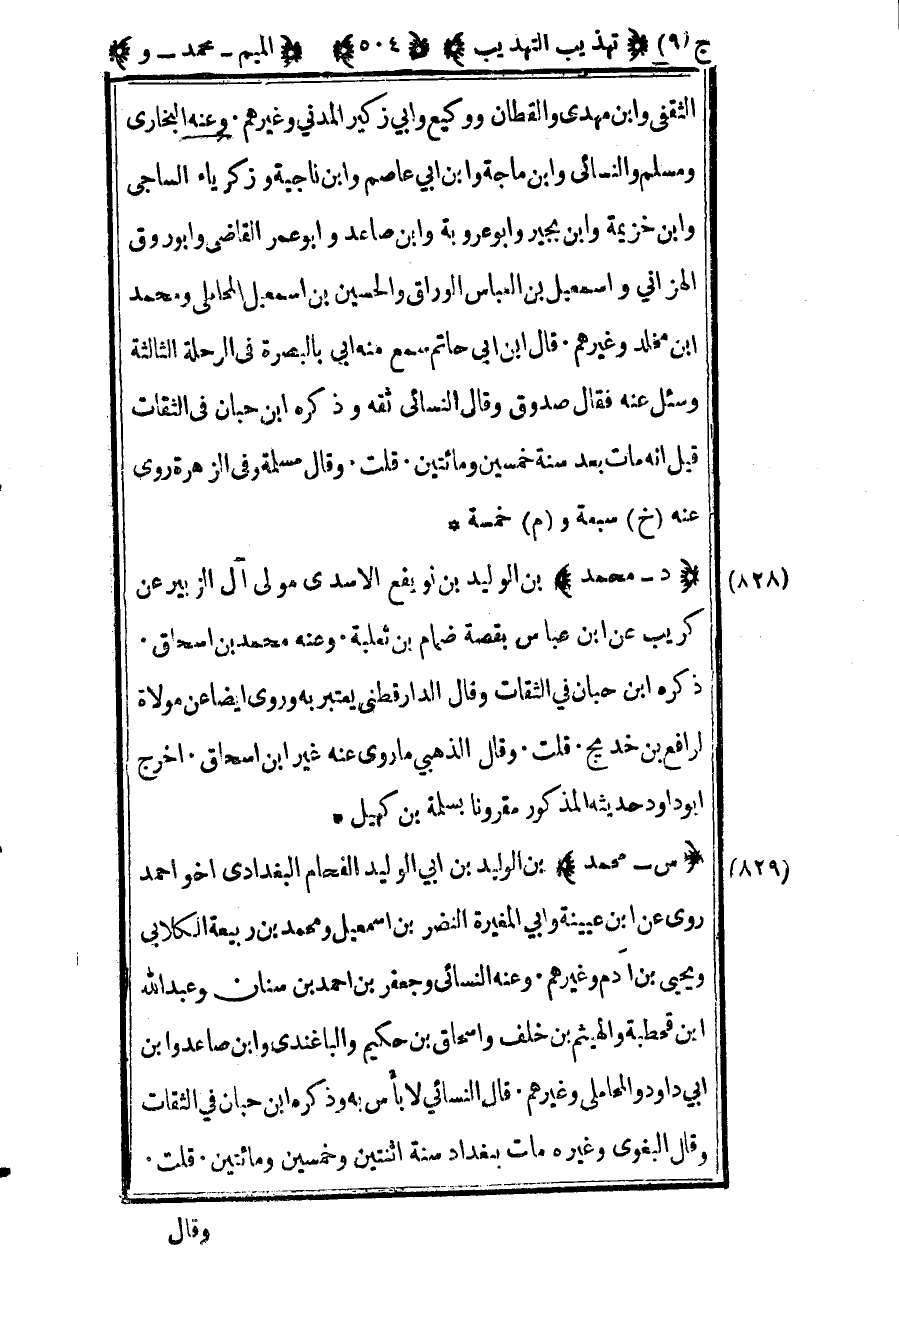 ج (٩) ﴿ تهذيب التهذيب ﴾ ﴿ ٥٠٤ ﴾ ﴿ الميم - محمد - و ﴾
الثقفى وابن مهدى والقطان ووكيع وابي زكير المدني وغيرهم · وعنه البخارى
ومسلم والنسائى وابن ماجة وابن ابي عاصم وابن ناجية وزكرياء الساجى
وابن خزيمة وابن بجير وابو عروبة وابن صاعد وابو عمر القاضى وابوروق
الهزاني واسمعيل بن العباس الوراق والحسين بن اسمعيل المحاملى ومحمد
ابن مخلد وغيرهم · قال ابن ابي حاتم سمع منه ابي بالبصرة فى الرحلة الثالثة
وسئل عنه فقال صدوق وقال النسائى ثقه وذكره ابن حبان فى الثقات
قيل انه مات بعد سنة خمسين ومائتين · قلت · وقال مسلمة وفى الزهرة روى
عنه (خ) سبعة و (م) خمسة *
(٨٢٨) ﴿ د - محمد ﴾ بن الوليد بن نويفع الاسدى مولى آل الزبير عن
كريب عن ابن عباس بقصة ضمام بن ثعلبة · وعنه محمد بن اسحاق ·
ذكره ابن حبان في الثقات وقال الدارقطنى يعتبر به وروى ايضا عن مولاة
لرافع بن خديج · قلت · وقال الذهبي ماروى عنه غير ابن اسحاق · اخرج
ابوداود حديثه المذكور مقرونا بسلمة بن كهيل *
(٨٢٩) ﴿ س - محمد ﴾ بن الوليد بن ابي الوليد الفحام البغدادى اخو احمد
روى عن ابن عيينة وابي المغيرة النضر بن اسمعيل ومحمد بن ربيعة الكلابي
ويحيى بن آدم وغيرهم · وعنه النسائى وجعفر بن احمد بن سنان وعبدالله
ابن قحطبة والهيثم بن خلف واسحاق بن حكيم والباغندى وابن صاعد وابن
ابي داود والمحاملى وغيرهم · قال النسائي لا بأس به وذكره ابن حبان في الثقات
وقال البغوى وغيره مات ببغداد سنة اثنتين وخمسين ومائتين · قلت ·
وقال